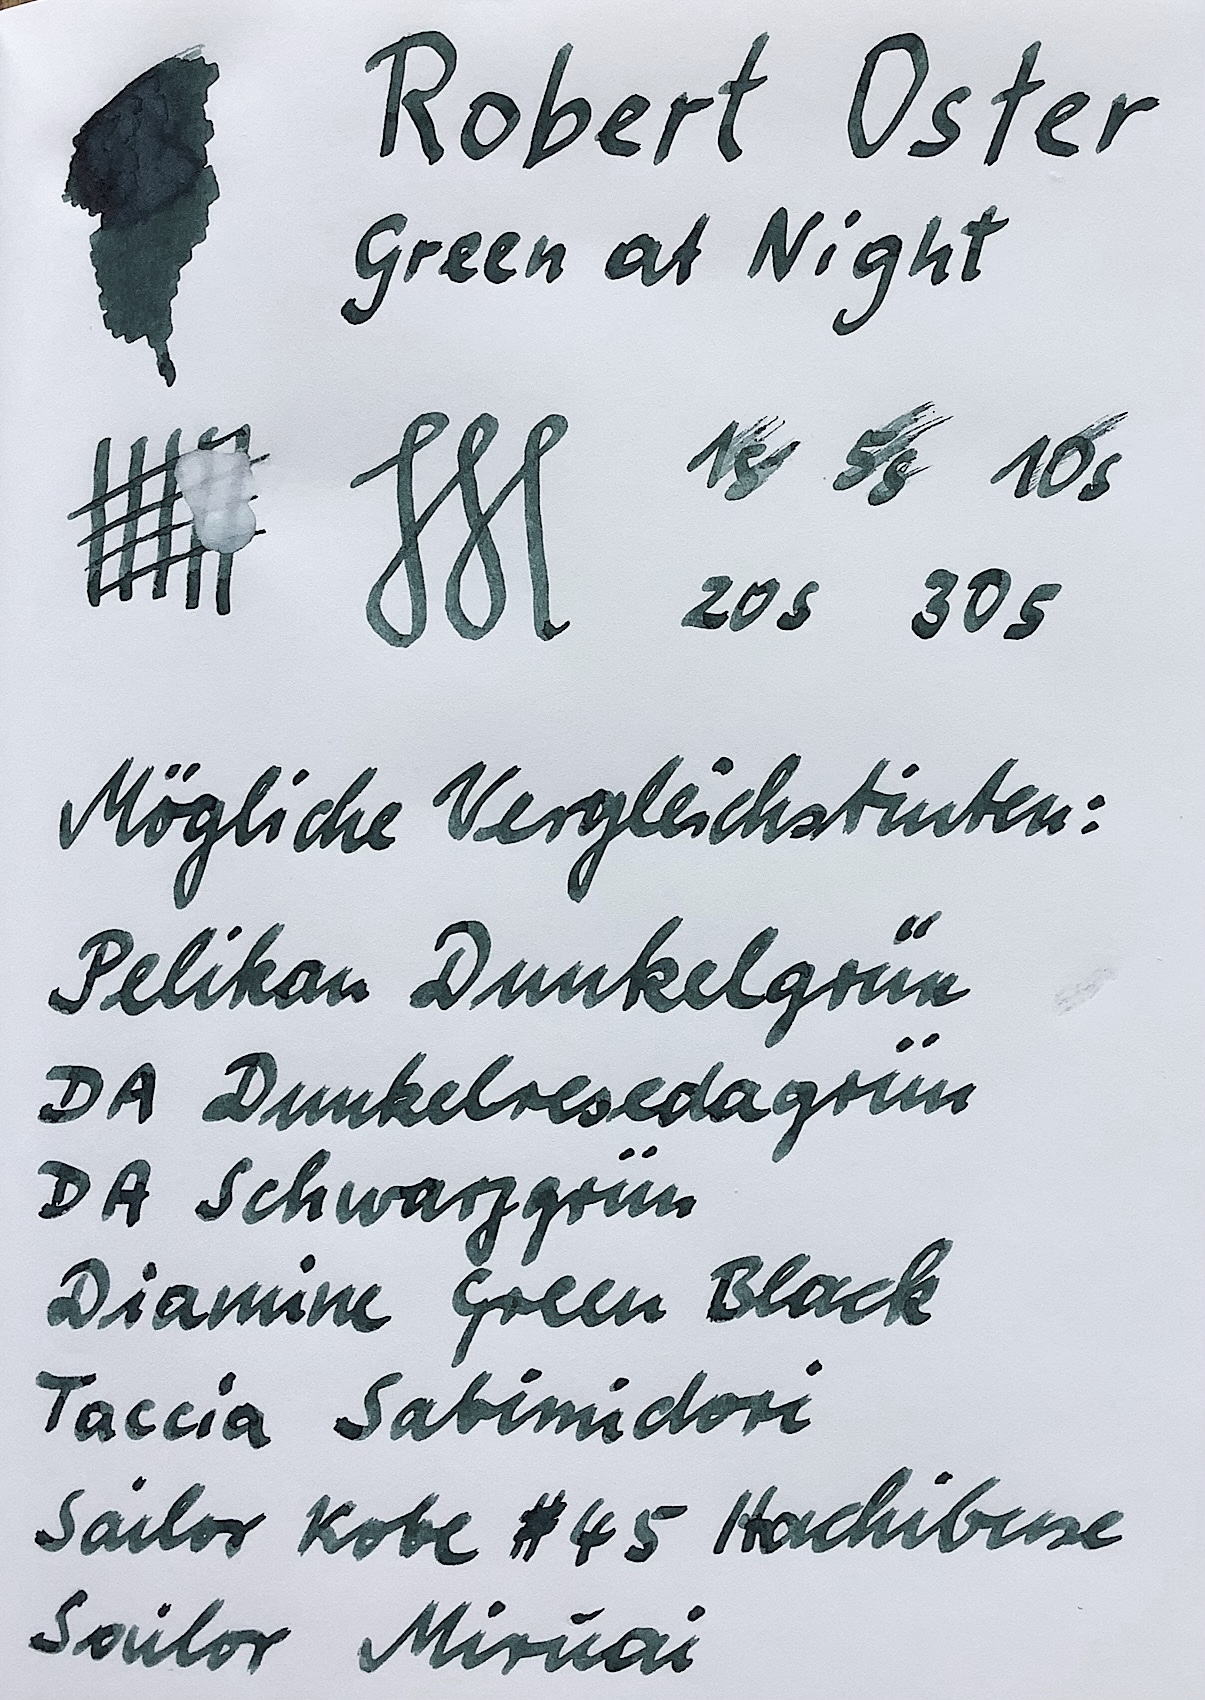 Robert Oster
Green at Night
1s 5s 10s
20s 30s
Mögliche Vergleichstinten:
Pelikan Dunkelgrün
DA Dunkelresedagrün
DA Schwarzgrün
Diamine Green Black
Taccia Sabimidori
Sailor Kobe #45 Hachibuse
Sailor Miruai